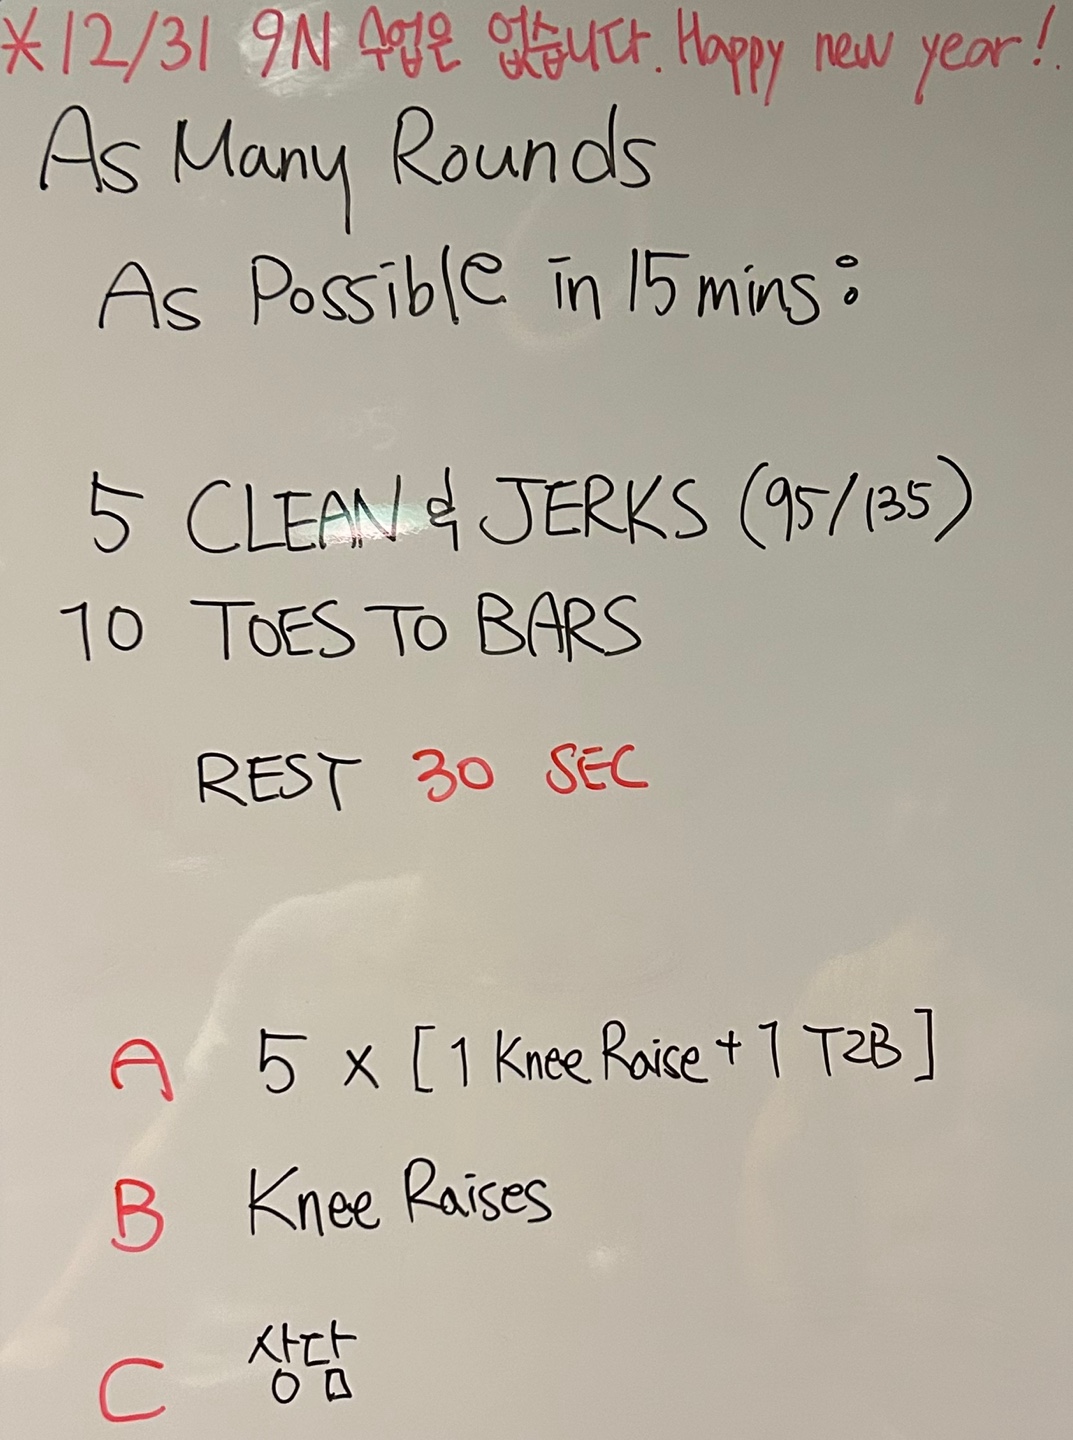 ※12/31 9시 수업은 없습니다. Happy new year!
As Many Rounds
As Possible in 15 mins:
5 CLEAN & JERKS (95/135)
10 TOES TO BARS
REST 30 SEC
A 5 x [1 Knee Raise + 1 T2B]
B Knee Raises
C 상담